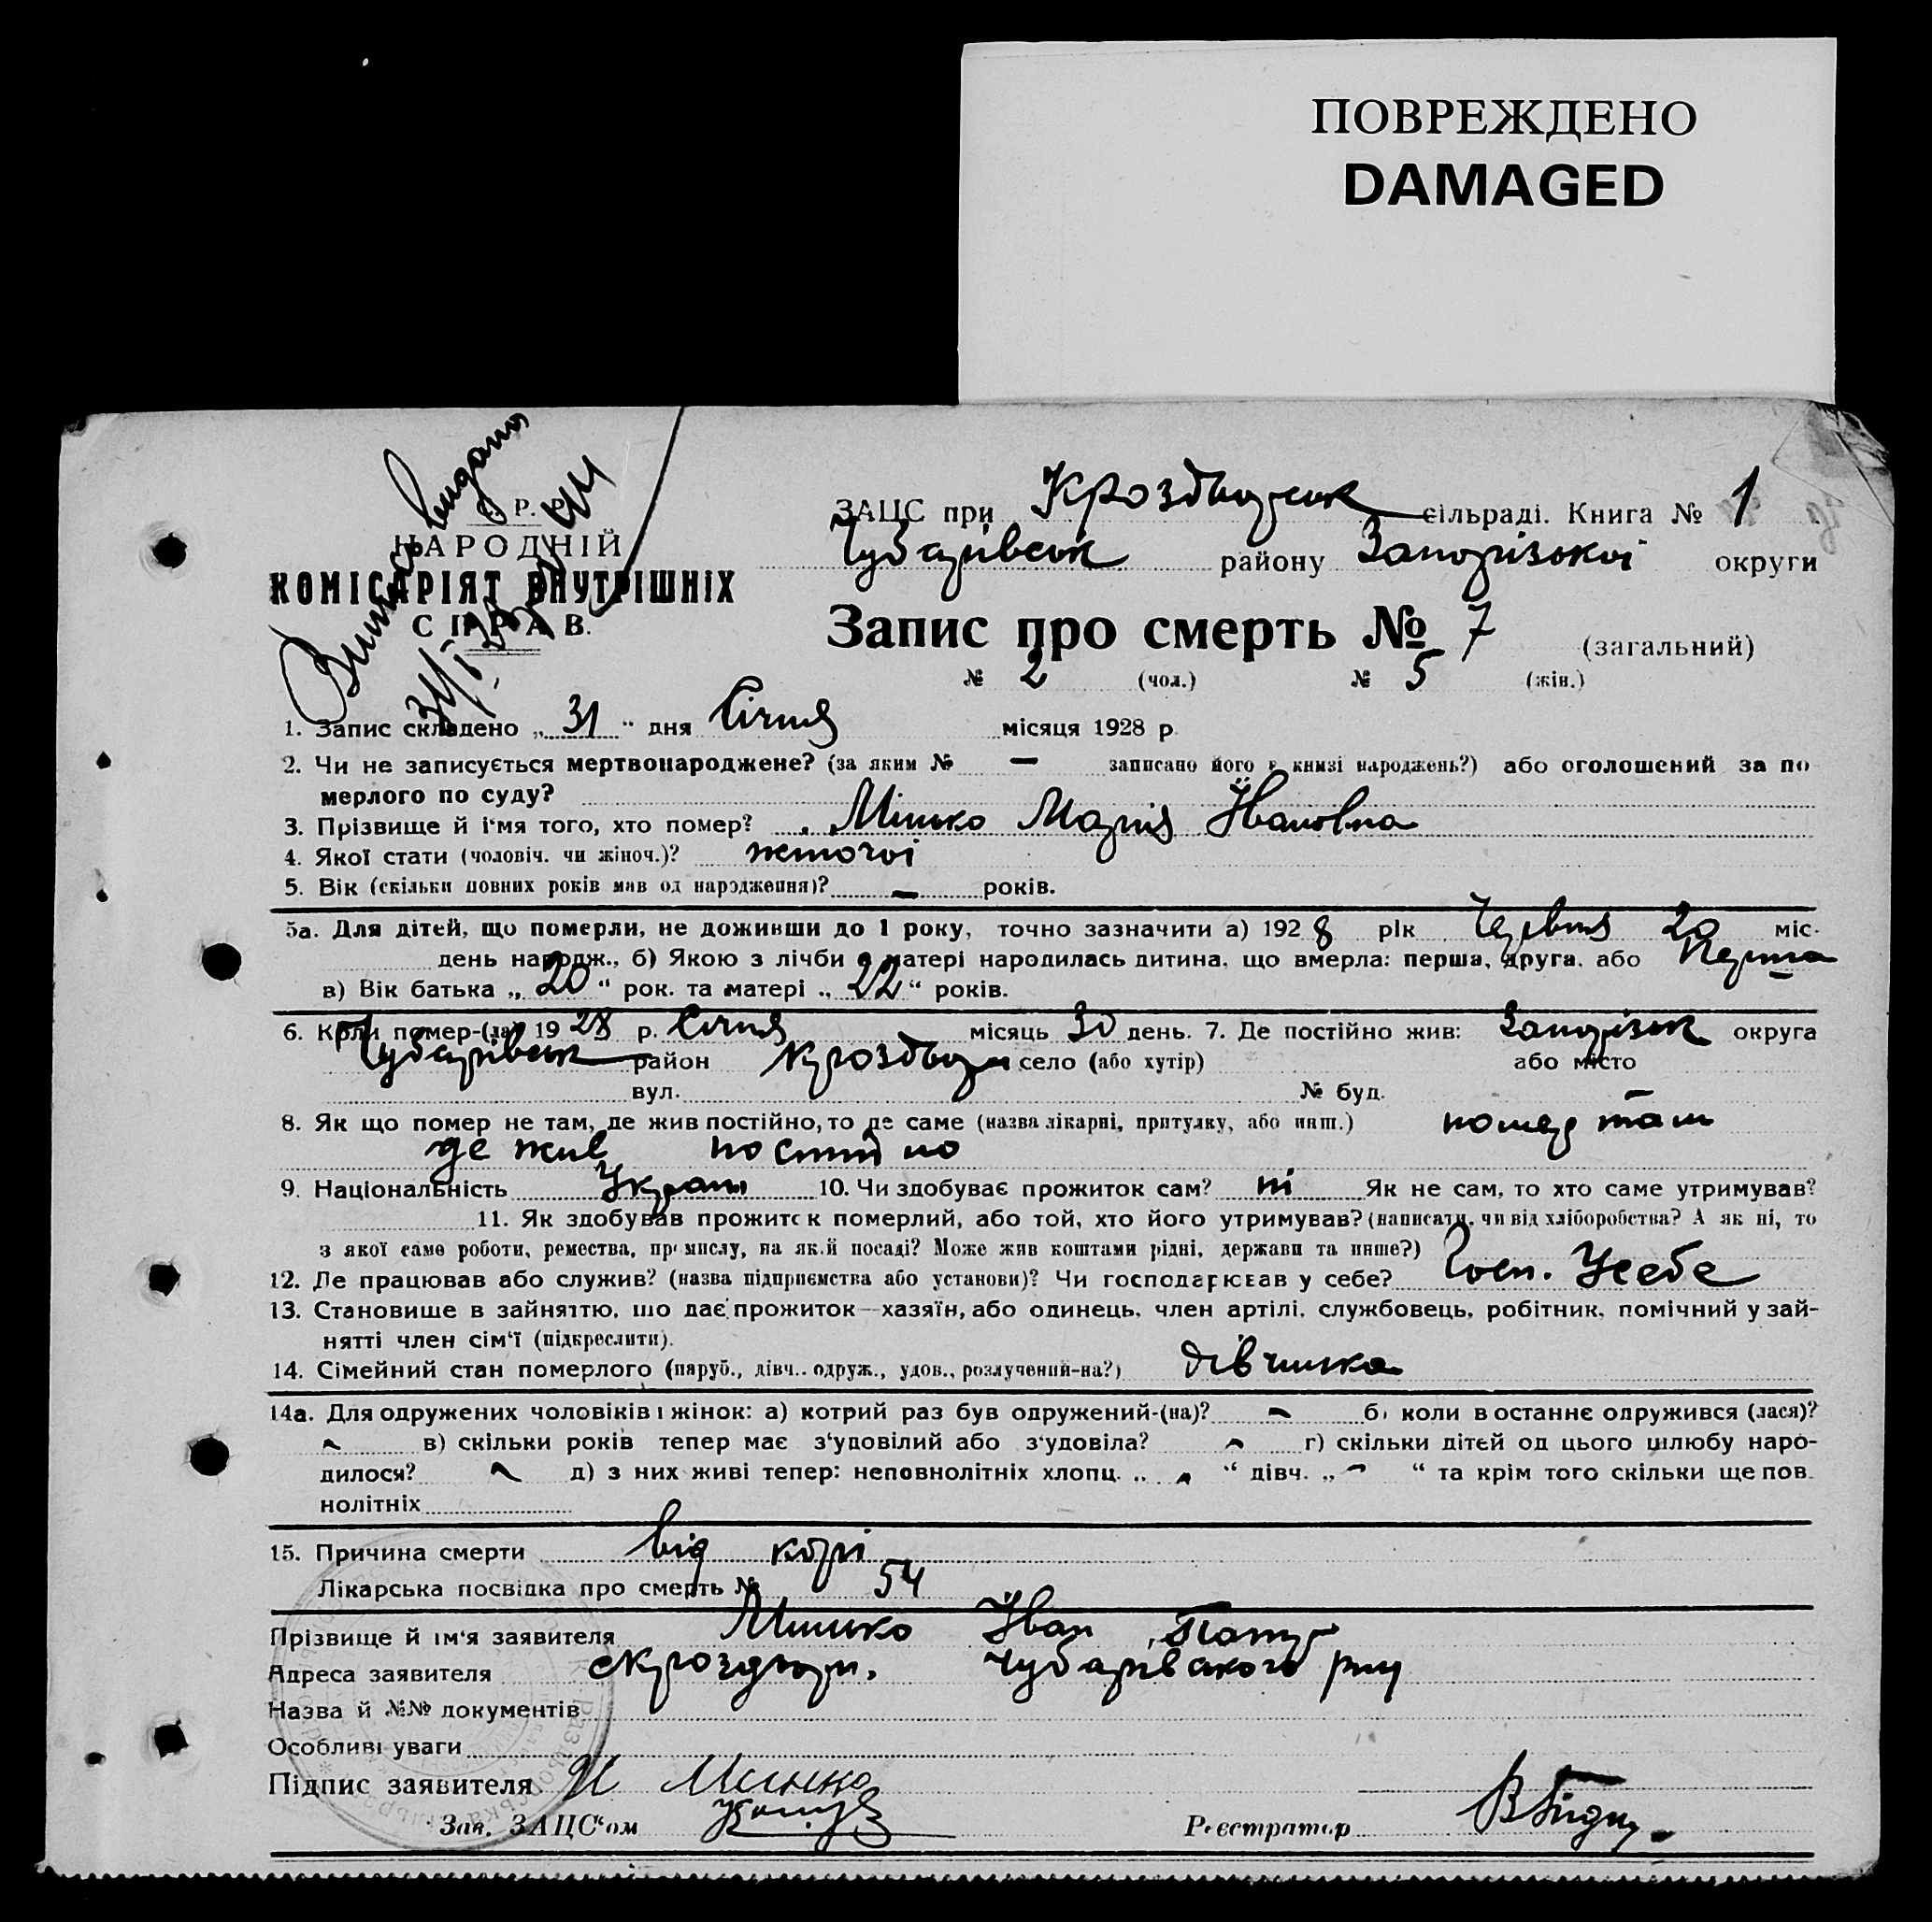 ПОВРЕЖДЕНО
DAMAGED
Виписа видана
31/I 28 р.
Р.
ЗАЦС при Кроздьорськ сільраді. Книга № 1
НАРОДНІЙ
Чубарівськ району Запорізької округи
КОМІСАРІЯТ ВНУТРІШНІХ
СПРАВ.
Запис про смерть № 7 (загальний)
№ 2 (чол.) № 5 (жін.)
1. Запис складено „ 31 " дня Січня місяця 1928 р
2. Чи не записується мертвонароджене? (за яким № — записано його в книзі народжень?) або оголошений за по
мерлого по суду?
3. Прізвище й і'мя того, хто помер? Мінько Марія Івановна
4. Якої стати (чоловіч. чи жіноч.)? жіночої
5. Вік (скільки повних років мав од народження)? — років.
5а. Для дітей, що померли, не доживши до 1 року, точно зазначити а) 1928 рік Червня 20 міс.
день народж., б) Якою з лічби в матері народилась дитина, що вмерла: перша, друга, або Перша
в) Вік батька „ 20 " рок. та матері „ 22 " років.
6. Коли помер-(ла) 1928 р. Січня місяць 30 день. 7. Де постійно жив: Запорізьк округа
Чубарівськ район Кроздьор село (або хутір) або місто
вул. № буд.
8. Як що помер не там, де жив постійно, то де саме (назва лікарні, притулку, або инш.) помер там
де жив постійно
9. Національність Україн 10. Чи здобував прожиток сам? ні Як не сам, то хто саме утримував?
11. Як здобував прожиток померлий, або той, хто його утримував? (написати, чи від хліборобства? А як ні, то
з якої саме роботи, ремества, промислу, на якій посаді? Може жив коштами рідні, держави та инше?)
12. Де працював або служив? (назва підприємства або установи)? Чи господарював у себе? Госп. Усебе
13. Становище в зайняттю, що дає прожиток—хазяїн, або одинець, член артілі, службовець, робітник, помічний у зай-
нятті член сім'ї (підкреслити).
14. Сімейний стан померлого (паруб., дівч.. одруж., удов., розлучений-на?) дівчинка
14а. Для одружених чоловіків і жінок: а) котрий раз був одружений-(на)? б) коли востаннє одружився (лася)?
в) скільки років тепер має з'удовілий або з'удовіла? г) скільки дітей од цього шлюбу наро-
дилося? д) з них живі тепер: неповнолітніх хлопц. „ " дівч. „ " та крім того скільки ще пов
нолітніх
15. Причина смерти від корі
Лікарська посвідка про смерть № 54
Прізвище й ім'я заявителя Минько Іван
Адреса заявителя с Кроздьор. Чубарівського рну
Назва й №№ документів
Особливі уваги
Підпис заявителя И Минька
Зав. ЗАЦС'ом Реєстратор